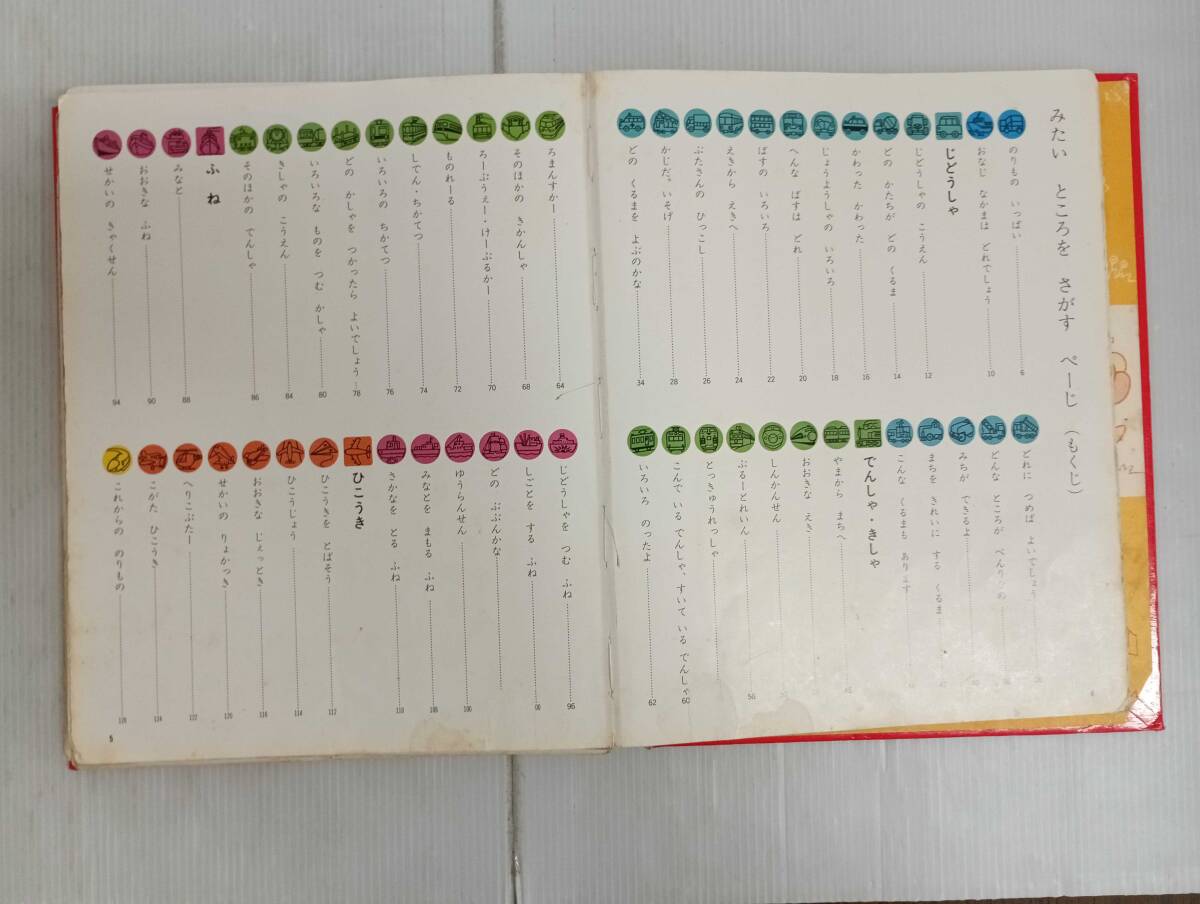 みたい ところを さがす ぺーじ (もくじ)
のりもの いっぱい 6
おなじ なかまは どれでしょう 10
じどうしゃ
じどうしゃの こうえん 12
どの かたちが どの くるま 14
かわった かわった 16
じょうようしゃの いろいろ 18
へんな ばすは どれ 20
ばすの いろいろ 22
えきから えきへ 24
ぶたさんの ひっこし 26
かじだ。いそげ 28
どの くるまを よぶのかな 34
どれに つめば よいでしょう
どんな ところが べんりなの
みちが できるよ
まちを きれいに する くるま
こんな くるまも あります
でんしゃ・きしゃ
やまから まちへ
おおきな えき
しんかんせん
ぶるーとれいん 56
とっきゅうれっしゃ
こんで いる でんしゃ、すいて いる でんしゃ 60
いろいろ のったよ 62
ろまんすかー 64
そのほかの きかんしゃ 68
ろーぷうぇー・けーぶるかー 70
ものれーる 72
してん・ちかてつ 74
いろいろの ちかてつ 76
どの かしゃを つかったら よいでしょう 78
いろいろな ものを つむ かしゃ 80
きしゃの こうえん 84
そのほかの でんしゃ 86
ふね
みなと 88
おおきな ふね 90
せかいの きゃくせん 94
じどうしゃを つむ ふね 96
しごとを する ふね
どの ぶぶんかな
ゆうらんせん
みなとを まもる ふね
さかなを とる ふね 110
ひこうき
ひこうきを とばそう 112
ひこうじょう 114
おおきな じぇっとき 116
せかいの りょかっき 120
へりこぷたー 122
こがた ひこうき 124
これからの のりもの
4
5